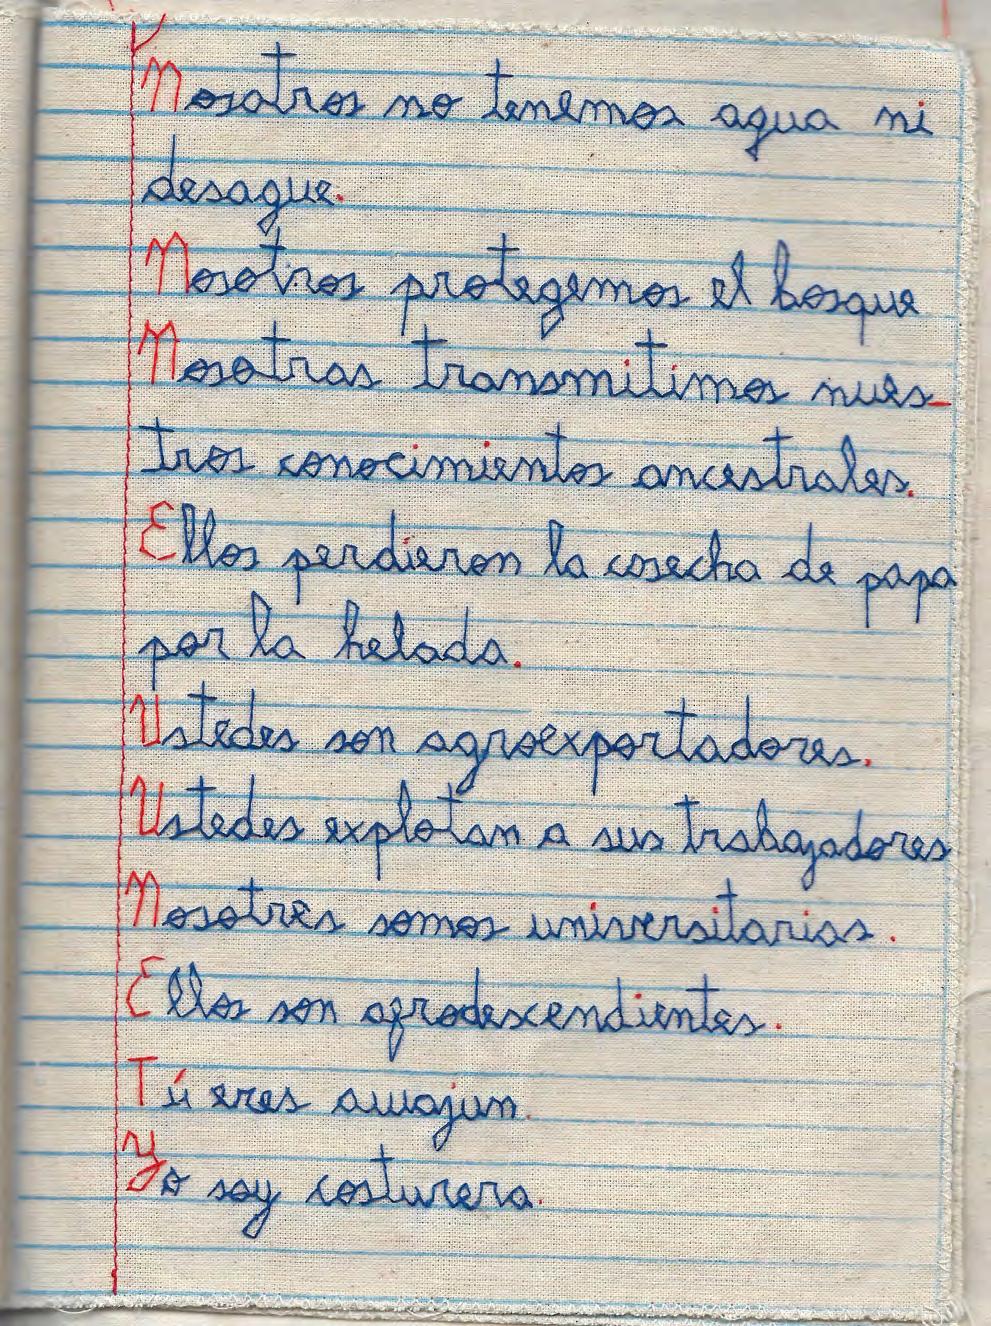 Nosotros no tenemos agua ni
desague.
Nosotros protegemos el bosque
Nosotras transmitimos nues-
tros conocimientos ancestrales.
Ellos perdieron la cosecha de papa
por la helada.
Ustedes son agroexportadores.
Ustedes explotan a sus trabajadores
Nosotres somos universitarias.
Ellos son afrodescendientes.
Tú eres awajun.
Yo soy costurera.